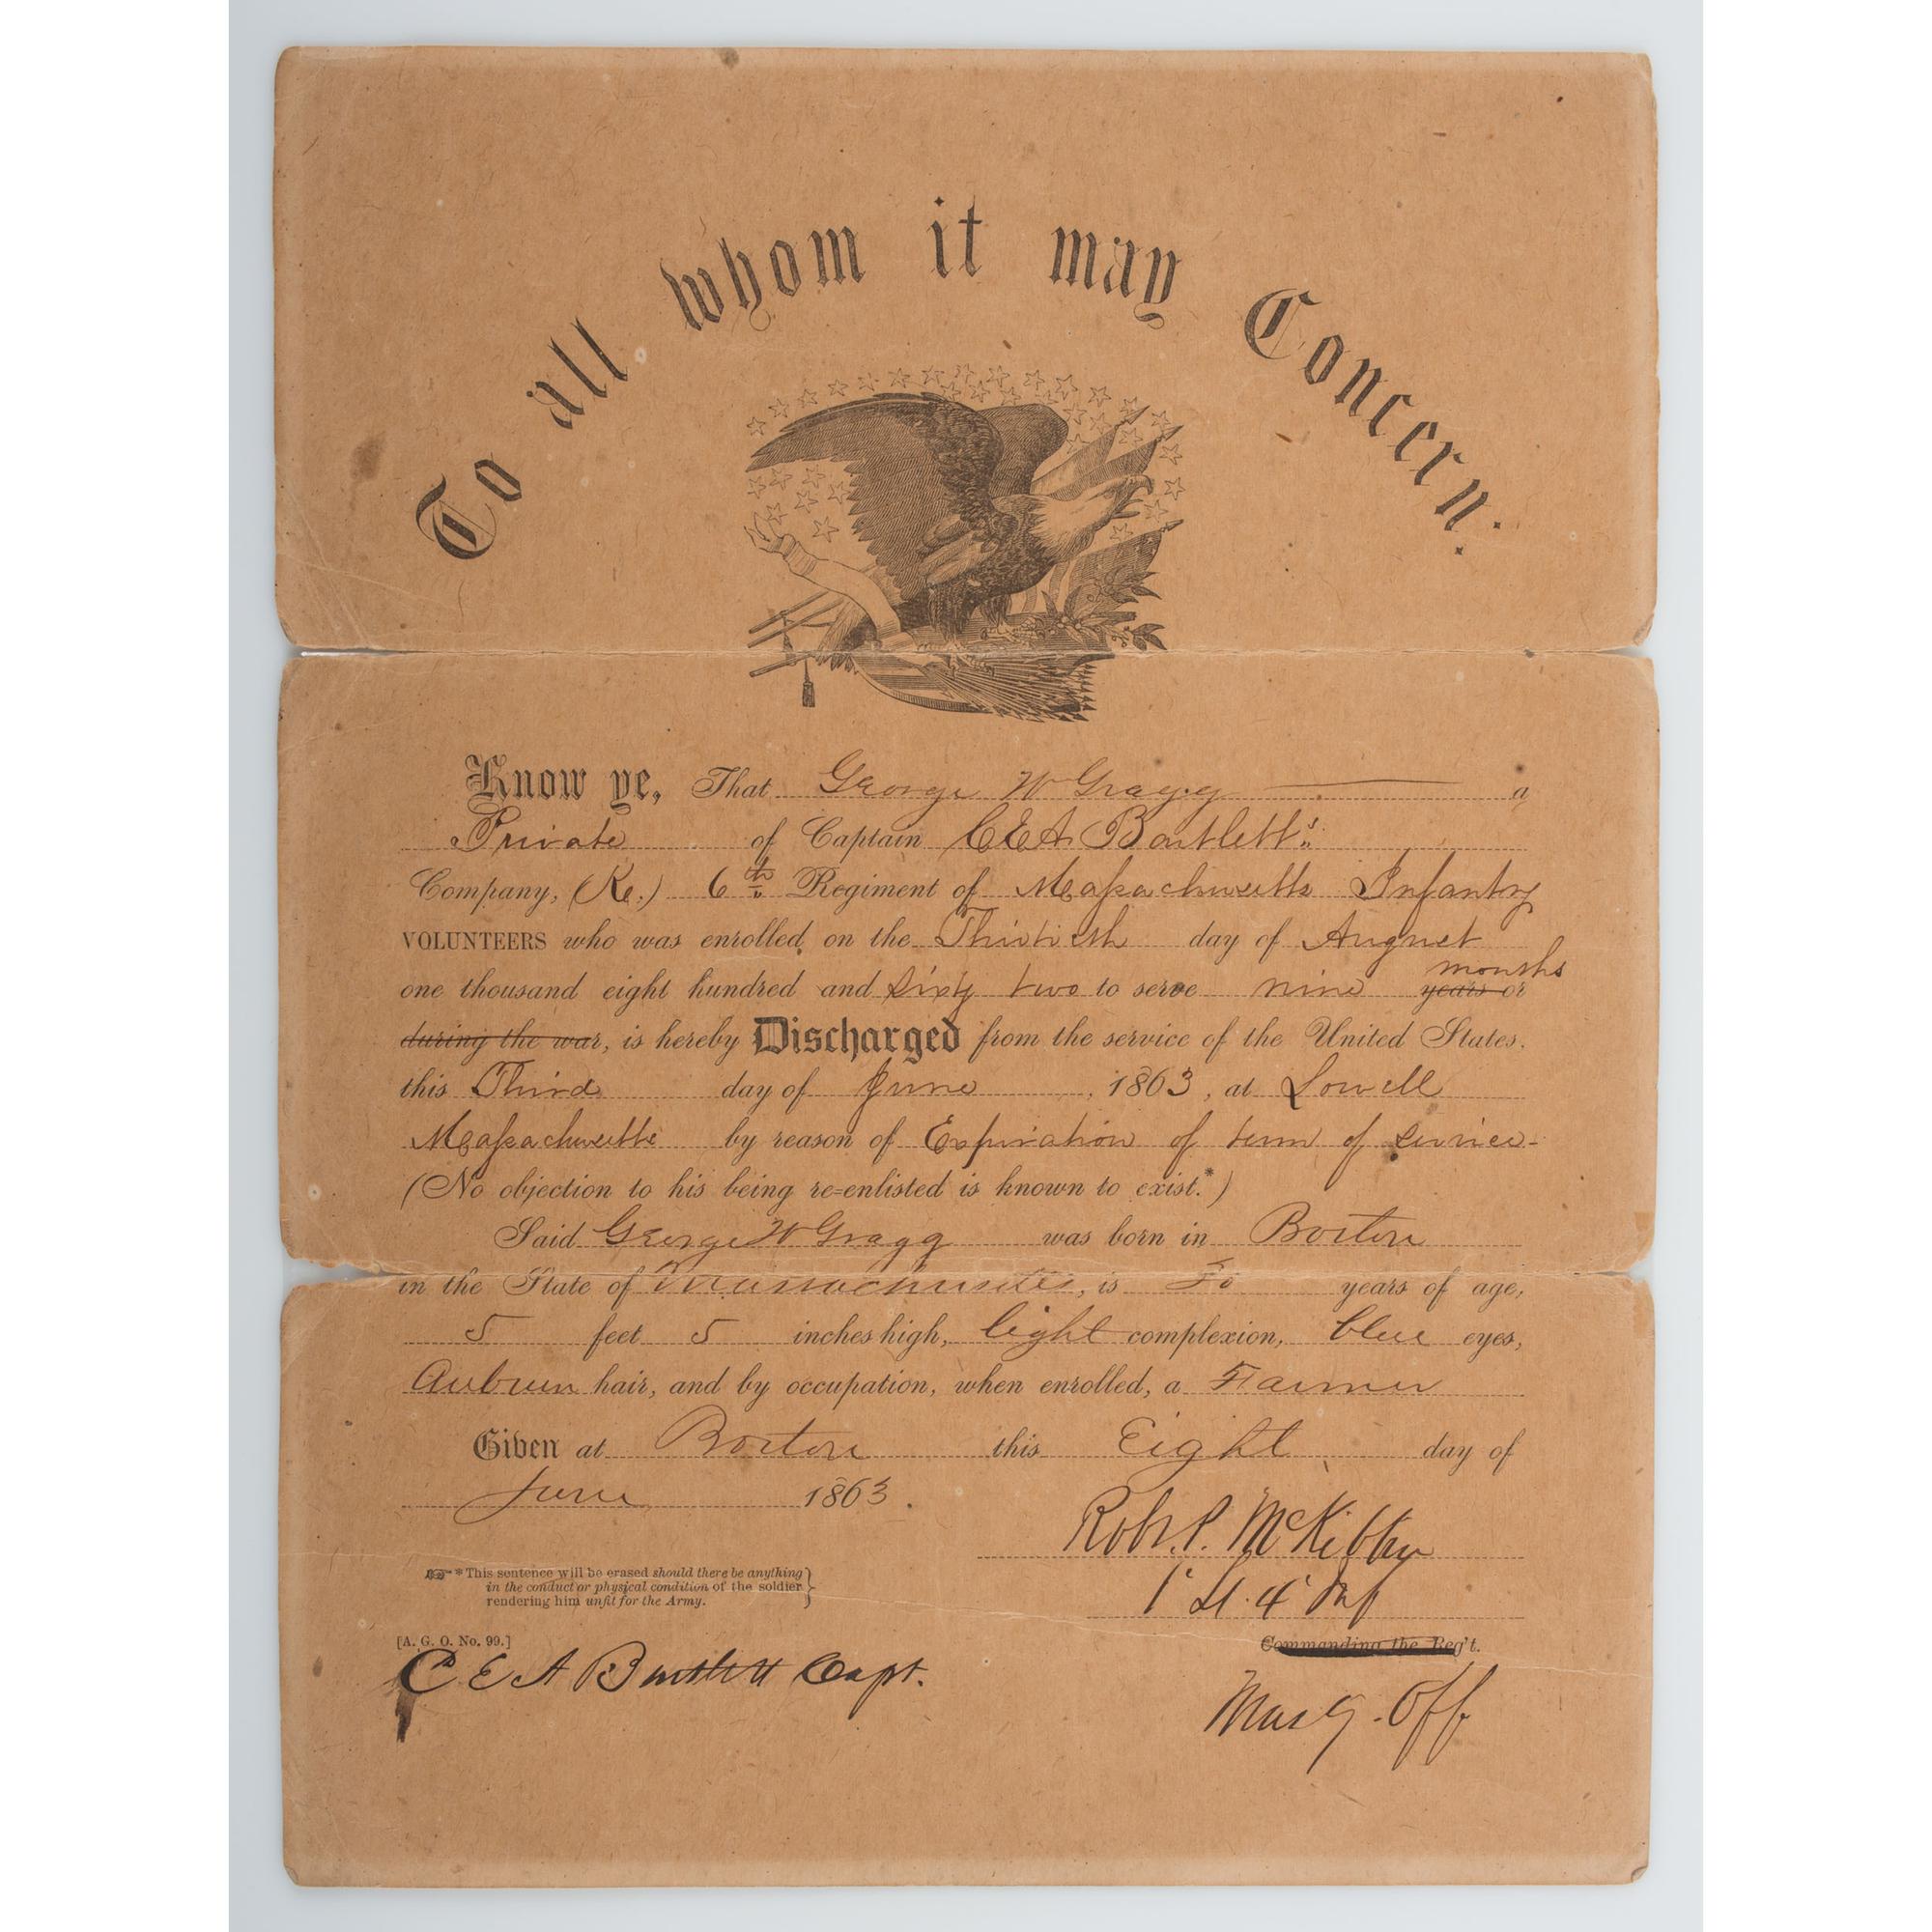 To all whom it may Concern.
Know ye, That George W Gragg a
Private of Captain C E A Bartlett's
Company, (K.) 6th Regiment of Massachusetts Infantry
VOLUNTEERS who was enrolled on the Thirtieth day of August
months
one thousand eight hundred and sixty two to serve nine years or
during the war, is hereby Discharged from the service of the United States,
this Third day of June, 1863, at Lowell
Massachusetts by reason of Expiration of term of service-
(No objection to his being re-enlisted is known to exist.*)
Said George W Gragg was born in Boston
in the State of Massachusetts, is years of age,
5 feet 5 inches high, light complexion, blue eyes,
Auburn hair, and by occupation, when enrolled, a Farmer
Given at Boston this Eight day of
June 1863.
Robt. P. McKibbin
1st Lt. 4th Inf
*This sentence will be erased should there be anything
in the conduct or physical condition of the soldier
rendering him unfit for the Army.
[A. G. O. No. 99.]
Commanding the Reg't.
C E A Bartlett Capt.
Musg. Off